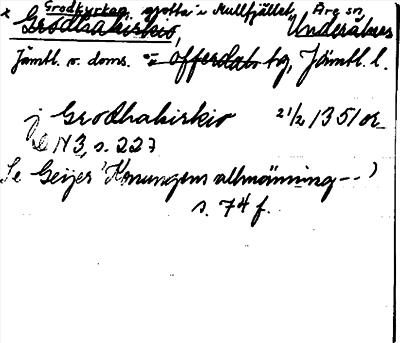 x Grodkyrkan, grotta i Mullfjället, Åre sn,
Grodhakirkio, Undersåkers
Jämtl. v. doms. Offerdals tg, Jämtl. l.
j Grodhakirkio 2½ 1351 or.
N 3, s. 227
Se Geijer "Konungens allmänning--")
s. 74 f.